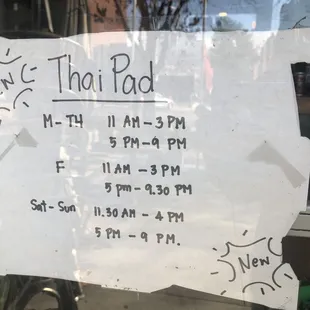 Thai Pad
M-TH 11 AM - 3 PM
5 PM - 9 PM
F 11 AM - 3 PM
5 pm - 9.30 PM
Sat - Sun 11.30 AM - 4 PM
5 PM - 9 PM.
New